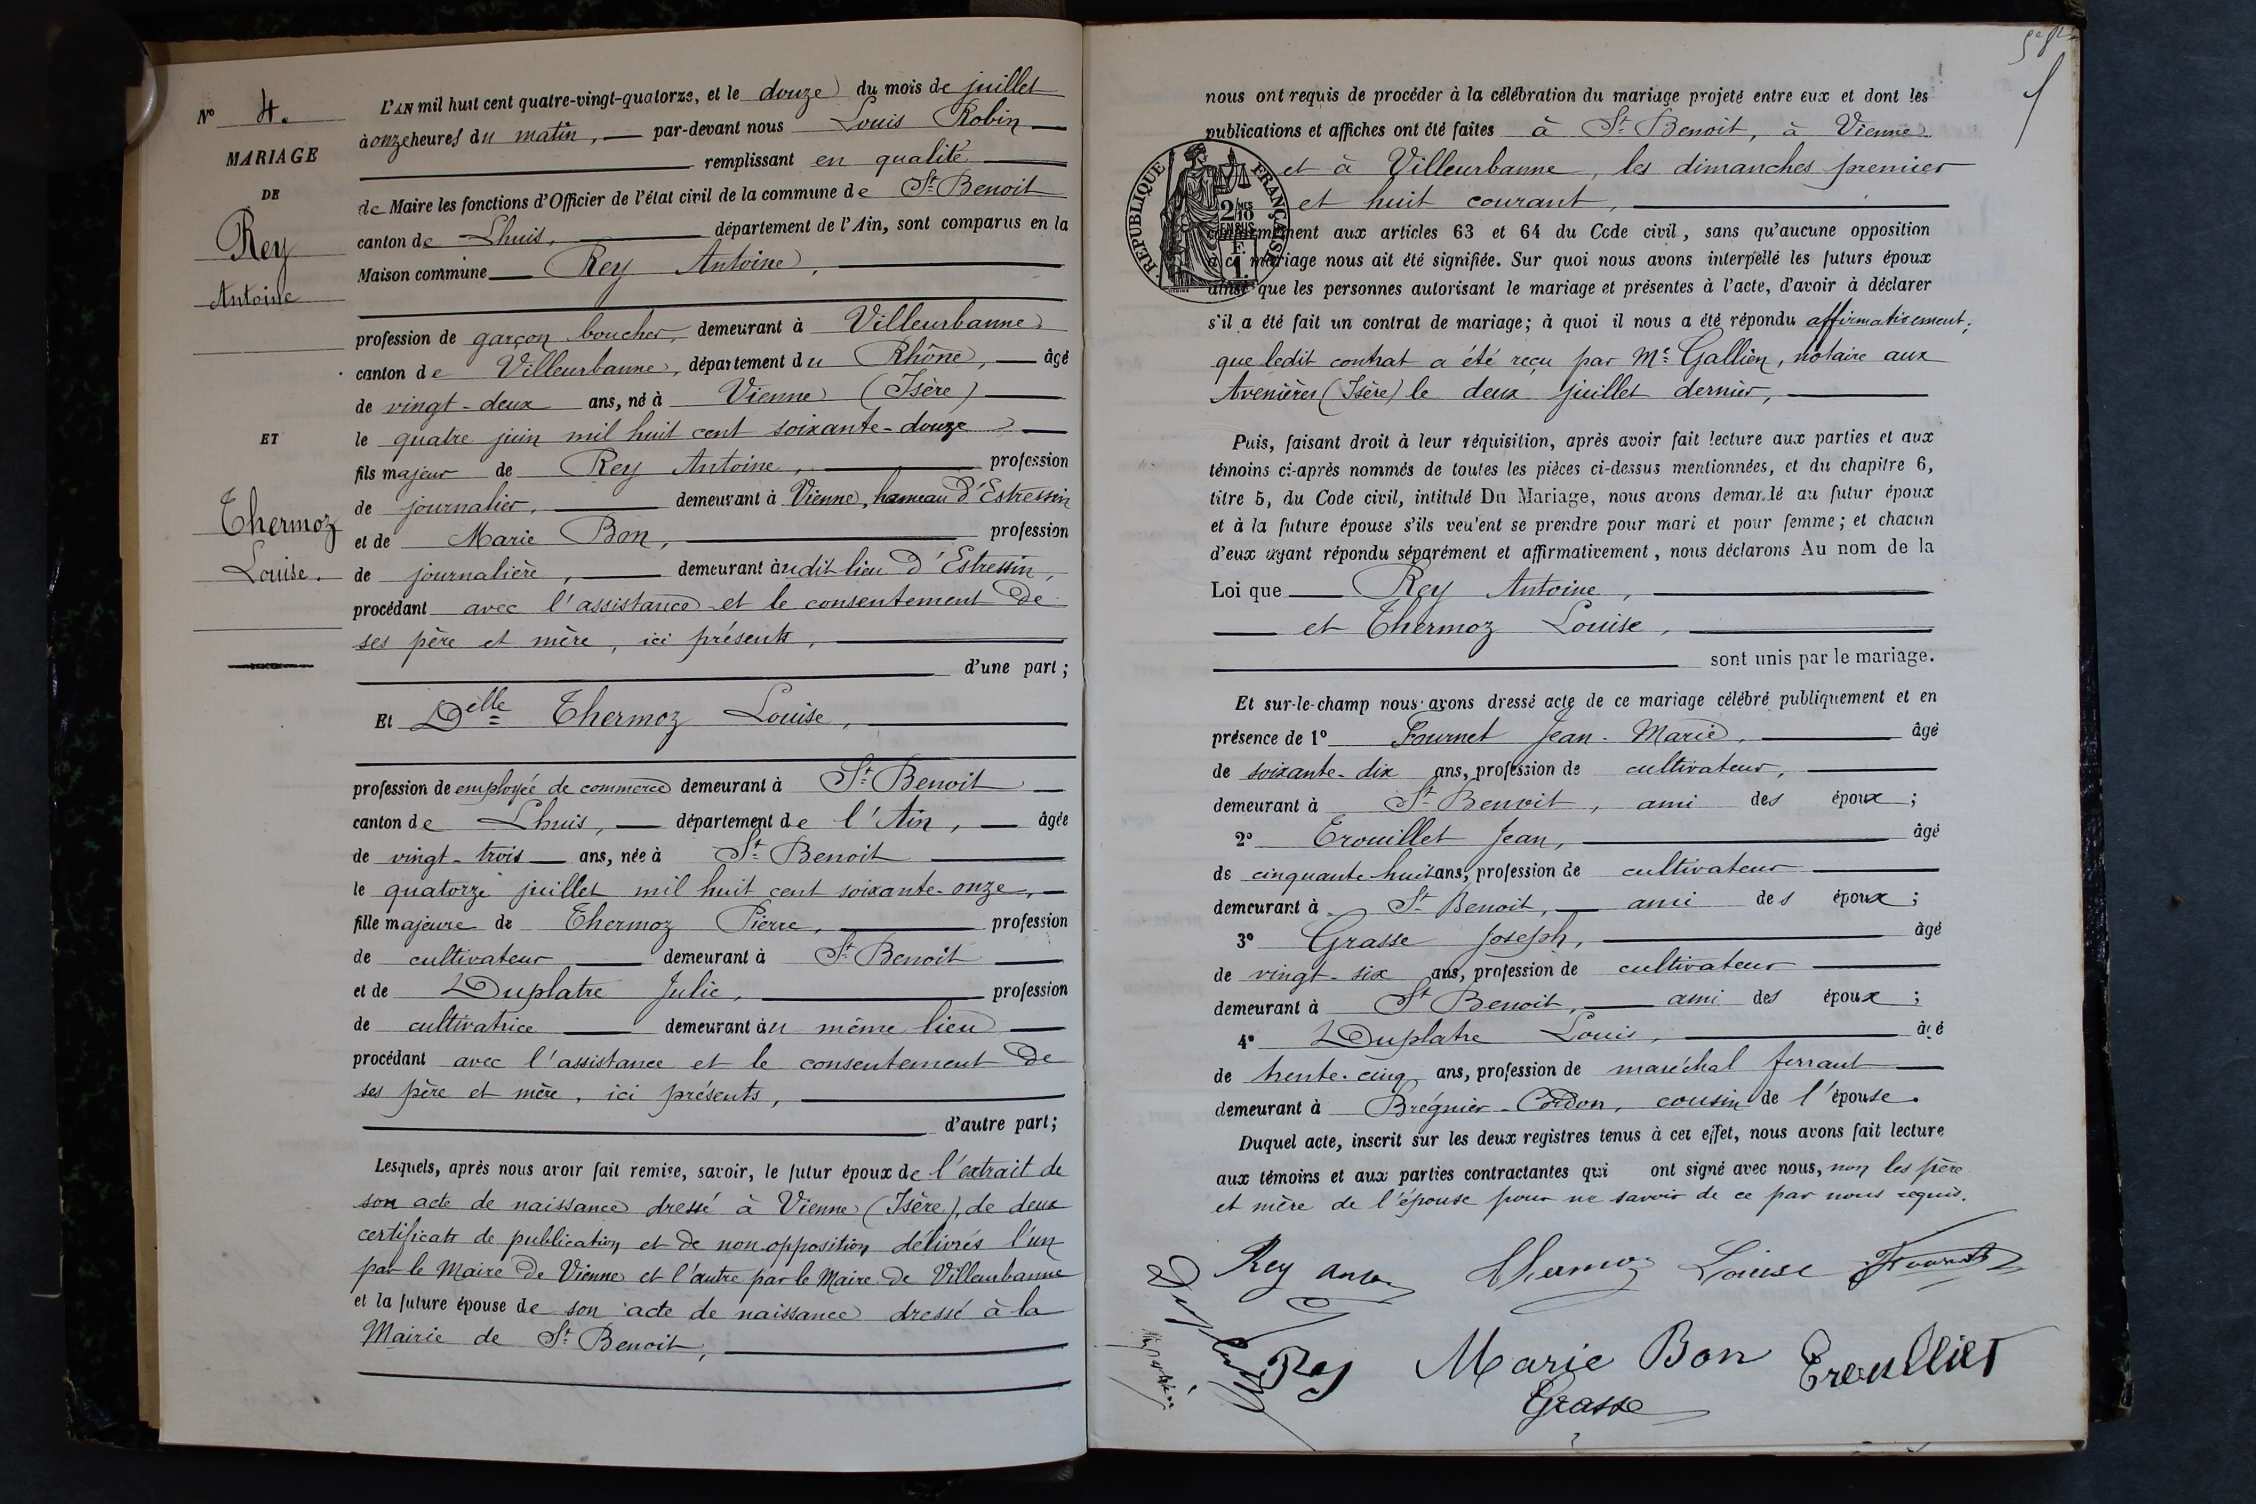 N° 4.
MARIAGE
DE
Rey
Antoine
ET
Thermoz
Louise.
L'AN mil huit cent quatre-vingt-quatorze, et le douze du mois de juillet
à onze heures du matin, par-devant nous Louis Robin
remplissant en qualité
de Maire les fonctions d'Officier de l'état civil de la commune de St Benoit
canton de Lhuis, département de l'Ain, sont comparus en la
Maison commune Rey Antoine,
profession de garçon boucher, demeurant à Villeurbanne
canton de Villeurbanne, département du Rhône, âgé
de vingt-deux ans, né à Vienne (Isère)
le quatre juin mil huit cent soixante-douze
fils majeur de Rey Antoine, profession
de journalier, demeurant à Vienne, hameau d'Estressin
et de Marie Bon, profession
de journalière, demeurant àudit lieu d'Estressin,
procédant avec l'assistance et le consentement de
ses père et mère, ici présents,
d'une part;
Et Delle Thermoz Louise,
profession de employée de commerce demeurant à St Benoit
canton de Lhuis, département de l'Ain, âgée
de vingt-trois ans, née à St Benoit
le quatorze juillet mil huit cent soixante-onze,
fille majeure de Thermoz Pierre, profession
de cultivateur demeurant à St Benoit
et de Duplatre Julie, profession
de cultivatrice demeurant àu même lieu
procédant avec l'assistance et le consentement de
ses père et mère, ici présents,
d'autre part;
Lesquels, après nous avoir fait remise, savoir, le futur époux de l'extrait de
son acte de naissance dressé à Vienne (Isère), de deux
certificats de publication et de non opposition délivrés l'un
par le Maire de Vienne et l'autre par le Maire de Villeurbanne
et la future épouse de son acte de naissance dressé à la
Mairie de St Benoit,
nous ont requis de procéder à la célébration du mariage projeté entre eux et dont les
publications et affiches ont été faites à St Benoit, à Vienne
et à Villeurbanne, les dimanches premier
et huit courant,
RÉPUBLIQUE FRANÇAISE
conformément aux articles 63 et 64 du Code civil, sans qu'aucune opposition
à ce mariage nous ait été signifiée. Sur quoi nous avons interpellé les futurs époux
ainsi que les personnes autorisant le mariage et présentes à l'acte, d'avoir à déclarer
s'il a été fait un contrat de mariage; à quoi il nous a été répondu affirmativement,
que ledit contrat a été reçu par Me Gallien, notaire aux
Avenières (Isère) le deux juillet dernier,
Puis, faisant droit à leur réquisition, après avoir fait lecture aux parties et aux
témoins ci-après nommés de toutes les pièces ci-dessus mentionnées, et du chapitre 6,
titre 5, du Code civil, intitulé Du Mariage, nous avons demandé au futur époux
et à la future épouse s'ils veulent se prendre pour mari et pour femme; et chacun
d'eux ayant répondu séparément et affirmativement, nous déclarons Au nom de la
Loi que Rey Antoine,
et Thermoz Louise,
sont unis par le mariage.
Et sur-le-champ nous avons dressé acte de ce mariage célébré publiquement et en
présence de 1° Fournet Jean-Marie, âgé
de soixante-dix ans, profession de cultivateur,
demeurant à St Benoit, ami des époux;
2° Trouillet Jean, âgé
de cinquante-huit ans, profession de cultivateur
demeurant à St Benoit, ami des époux;
3° Grasse Joseph, âgé
de vingt-six ans, profession de cultivateur
demeurant à St Benoit, ami des époux;
4° Duplatre Louis, âgé
de trente-cinq ans, profession de maréchal ferrant
demeurant à Brégnier-Cordon, cousin de l'épouse.
Duquel acte, inscrit sur les deux registres tenus à cet effet, nous avons fait lecture
aux témoins et aux parties contractantes qui ont signé avec nous, non les père
et mère de l'épouse pour ne savoir de ce par nous requis.
Rey Thermoz Louise
Rey Marie Bon Trouilliet
Grasse